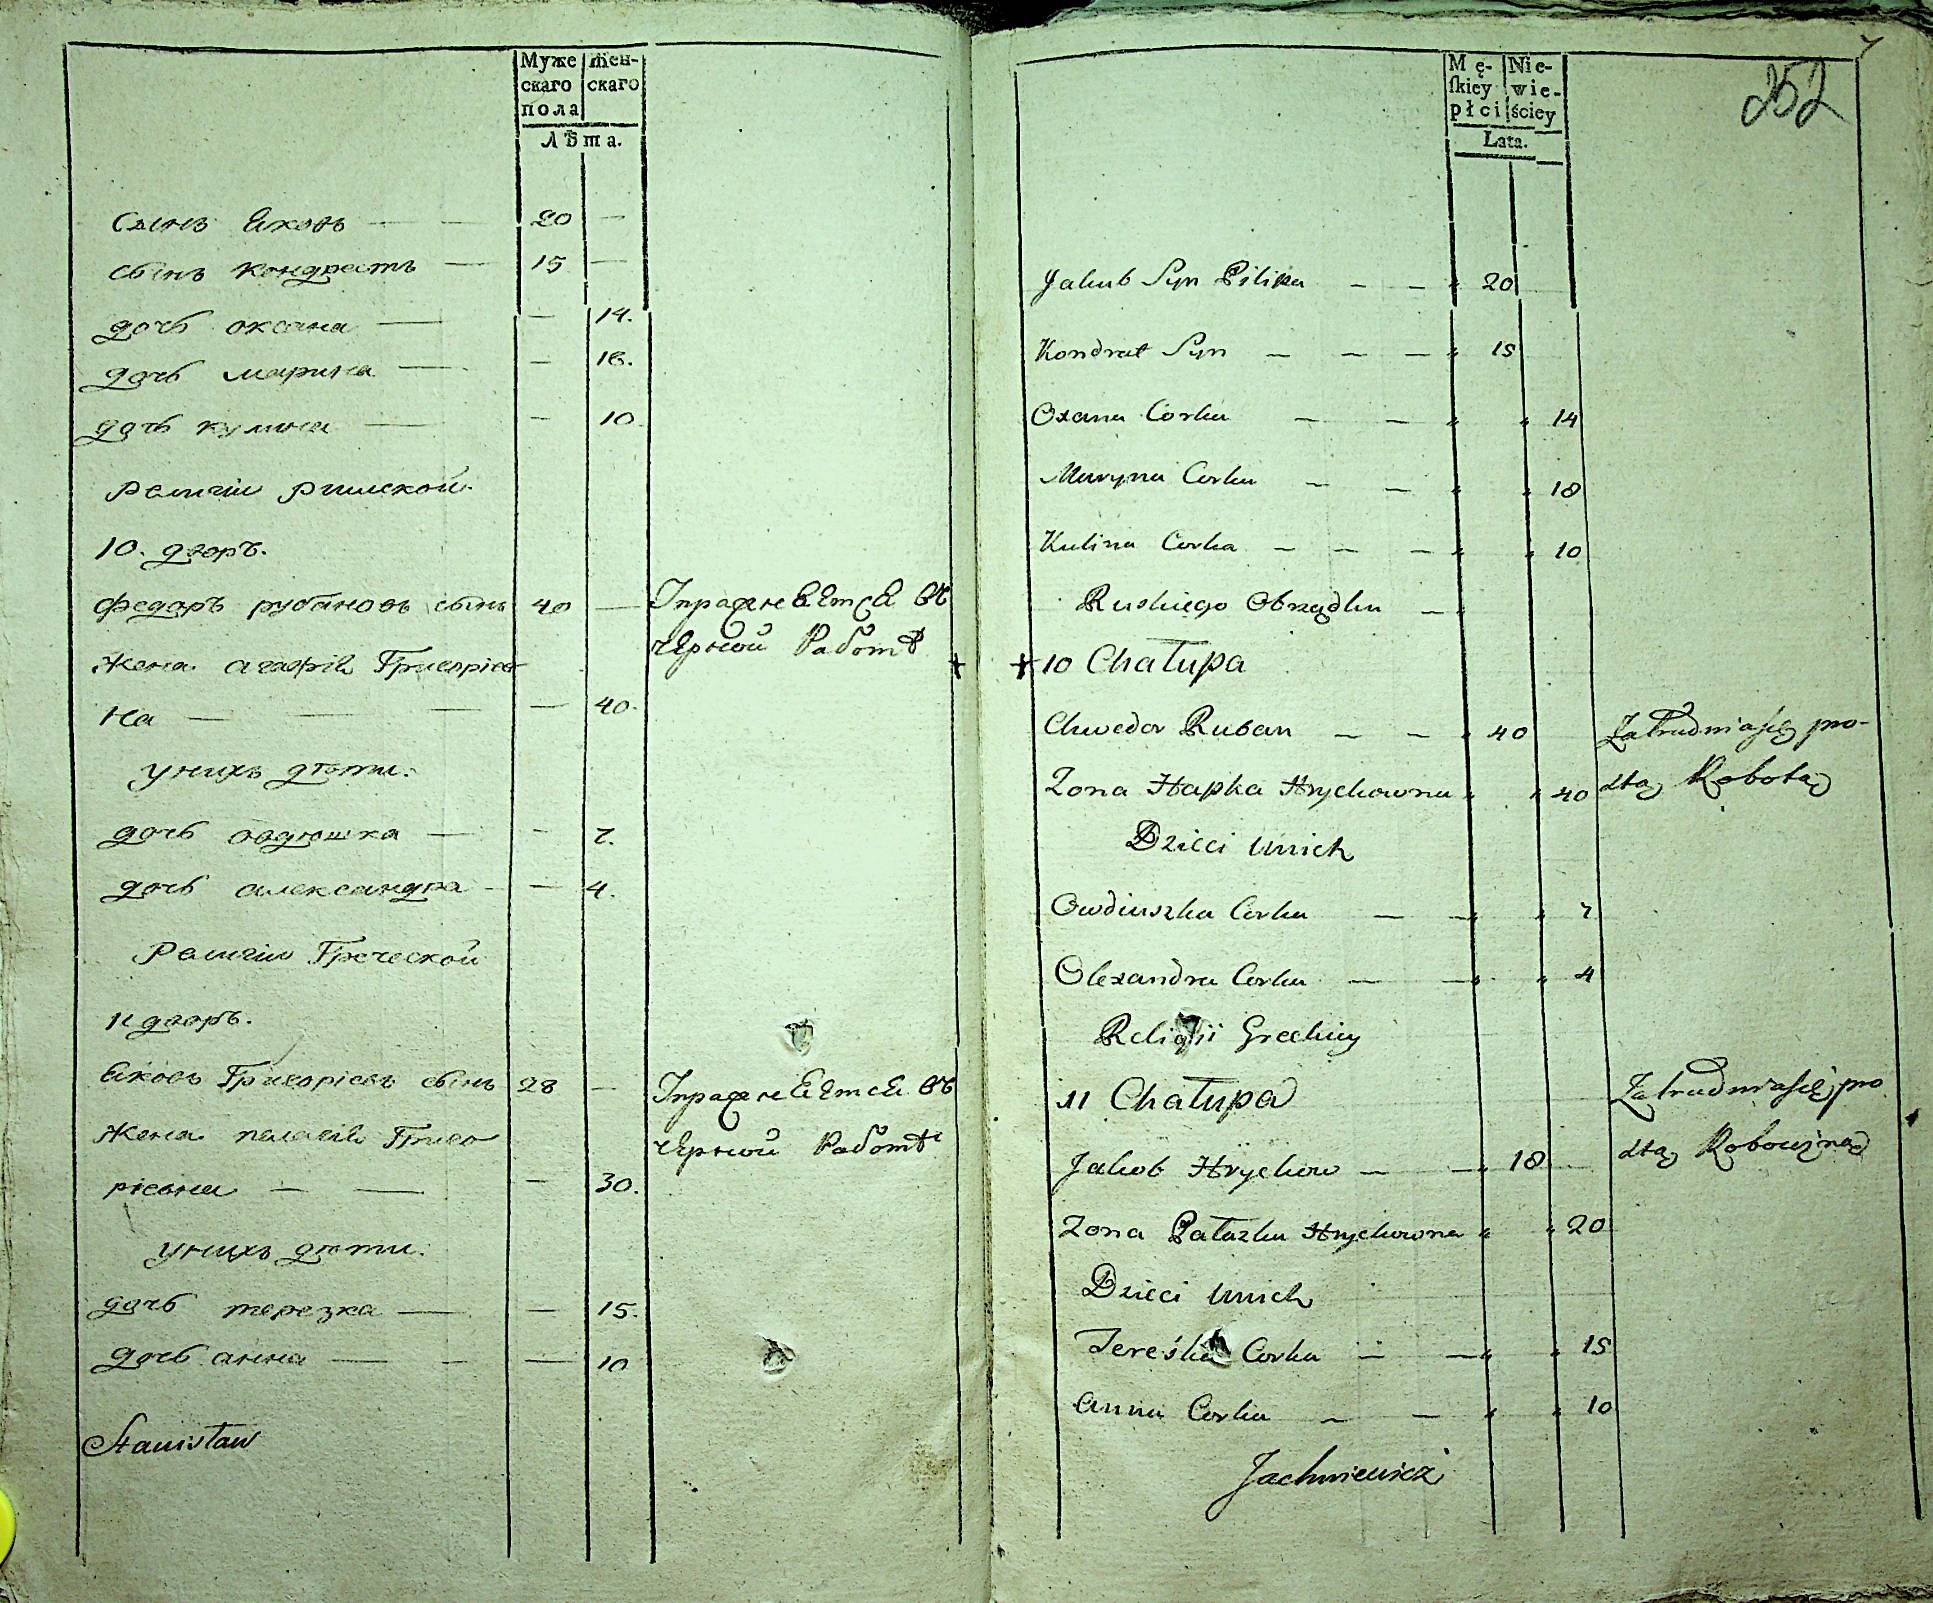 Муже
скаго
пола
Жен-
скаго
Лѣта.
сынъ Яковъ — — 20 —
сынъ Кондратъ — 15 —
дочь оксана — — 14.
дочь марина — — 18.
дочь кулина — — 10.
Религіи Римской.
10. дворъ.
Федоръ рубановъ сынъ 40 — Упражняется въ
черной Работѣ
Жена агафія Григоріев
на — — — — 40.
уних дѣти.
дочь овдюшка — — 7.
дочь александра — — 4.
Религіи Греческой
11 дворъ.
Яковъ Григоріевъ сынъ 28 — Упражняется въ
черной Работѣ
Жена пелагія Григо
ріевна — — — 30.
унихъ дѣти.
дочь терезка — — 15.
дочь анна — — — 10
Stanisław
252
Mę-
ſkiey
płci
Nie-
wie-
ściey
Lata.
Jakub Syn Pilipa — — „ 20
Kondrat Syn — — — „ 15
Oxana Corka — — „ „ 14
Maryna Corka — — „ „ 18
Kulina Corka — — — „ „ 10
Ruskiego Obrządku — „
+ + 10 Chałupa
Chwedor Ruban — — „ 40 Zatrudnia się pro-
Zona Hapka Hrychowna „ „ 40 stą Robotą
Dzieci unich
Owdiuszka Corka — — „ „ 7
Olexandra Corka — — „ „ 4
Religii Greckiey
11 Chałupa Zatrudnia się pro
Jakob Hrychow — — „ 18 stą
Zona Pałazka Hrychowna „ „ 20
Dzieci unich
Tereśka Corka — — „ „ 15
Anna Corka — — „ „ 10
Jachniewicz